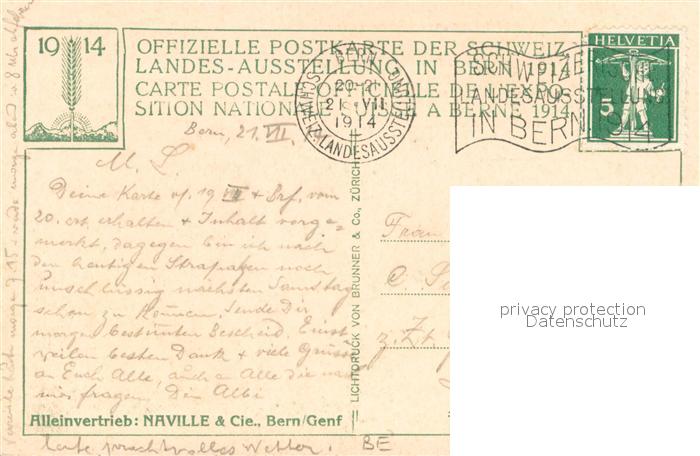 1914
OFFIZIELLE POSTKARTE DER SCHWEIZ.
LANDES-AUSSTELLUNG IN BERN 1914
CARTE POSTALE OFFICIELLE DE L'EXPO-
SITION NATIONALE SUISSE A BERNE 1914
BERN
20-
21. VII
1914
SCHWEIZ. LANDESAUSSTELLUNG
SCHWEIZ
1914
LANDESAUSSTELLUNG
IN BERN 1914
HELVETIA
5
Bern, 21. VII.
M. L.
Deine Karte v. 19 VII + Brf. vom
20. erhalten + Inhalt vorge=
merkt, dagegen bin ich nach
den heutigen Strapazen noch
unschlüssig nächsten Samstag
schon zu kommen, sende Dir
morgen bestimmten Bescheid. Einst
weilen besten Dank + viele Grüsse
an Euch Alle, auch an Alle die
mir fragen. Dein Albi
Frau
z. Zt
LICHTDRUCK VON BRUNNER & Co., ZÜRICH
Alleinvertrieb: NAVILLE & Cie., Bern/Genf
heute prachtvolles Wetter.
BE
privacy protection
Datenschutz